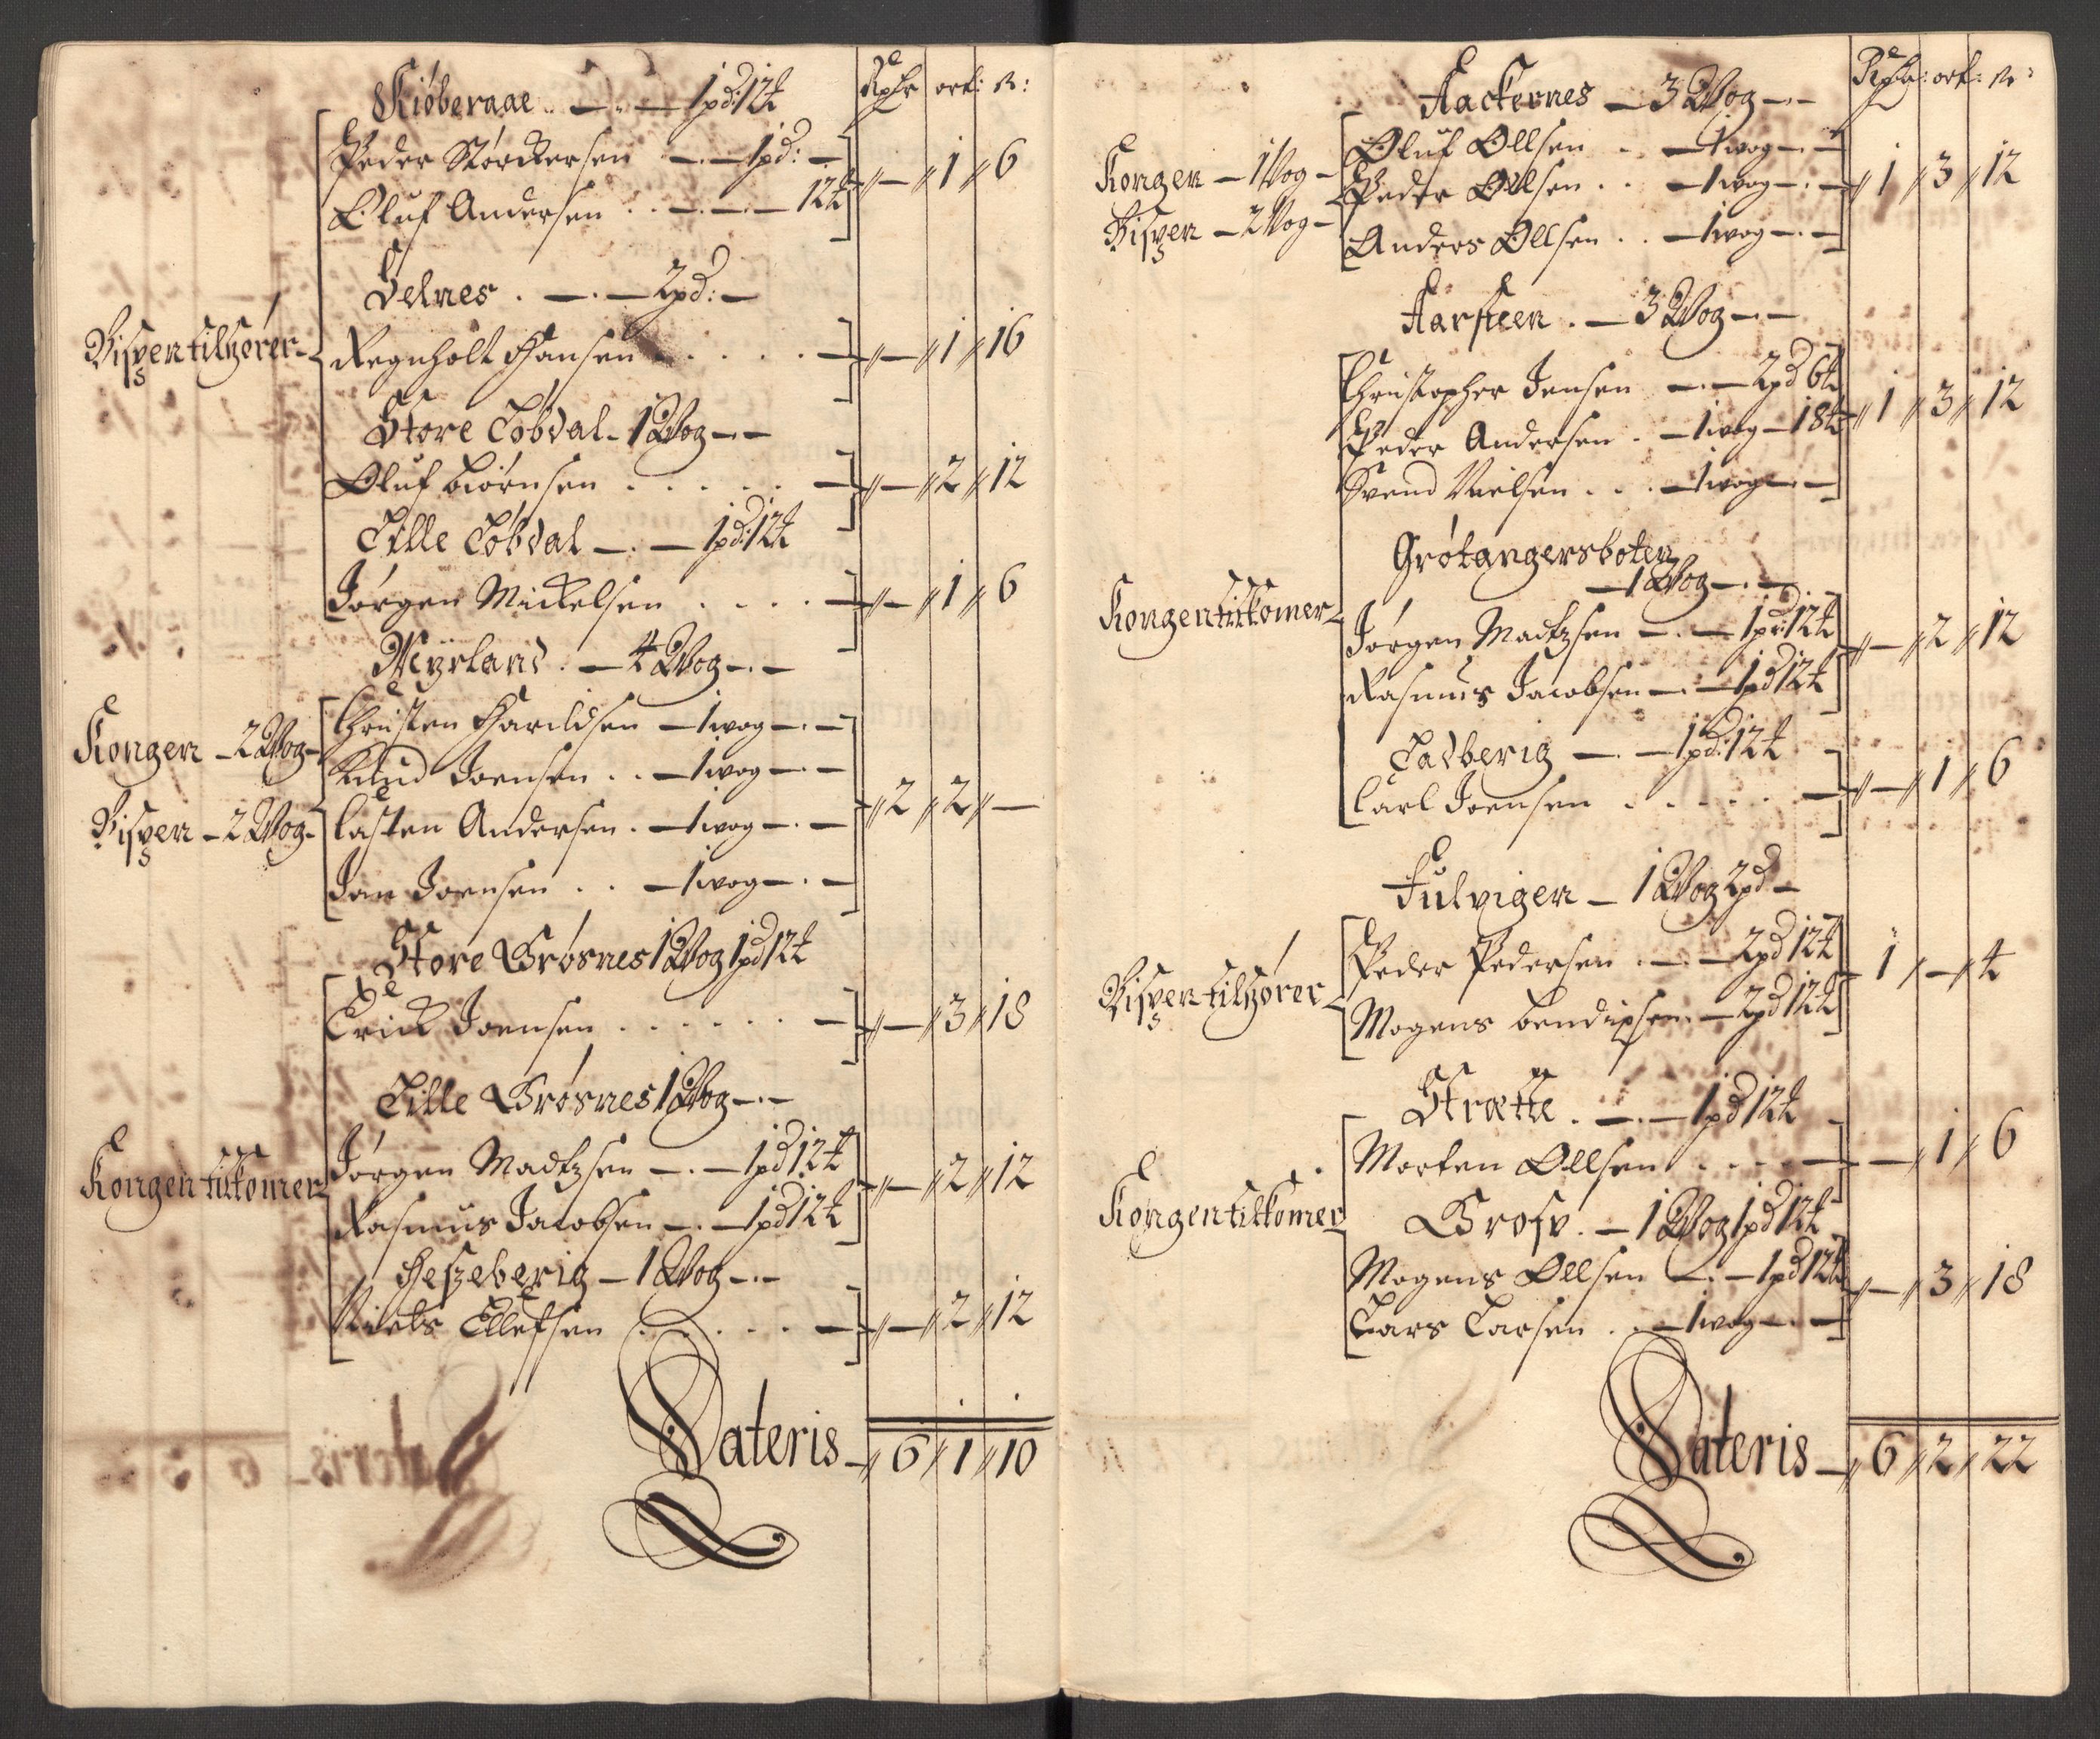 Rdr ort: s:
Kiøberaae . — . — 1pd: 12 t
Peder Størckersen — . — 1pd: —
Oluf Andersen . . — . — . — 12 t
— 1 6
Selnes . — . — 2pd: —
Bispen tilhører
Regnholt Hansen . . . . . —
— 1 16
Store Løbdal - 1 Wog — . —
Oluf biørnsen . . . . . —
— 2 12
Lille Løbdal — . — 1pd: 12 t
Jørgen Mickelsen . . . . —
— 1 6
Myrland . — 4 Wog — . —
Christen Harildsen — 1 wog — . —
Kongen — 2 Wog —
Knud Joensen . . — 1 wog — . —
Bispen — 2 Wog —
Casten Andersen . — 1 wog — . —
2 2 —
Jan Joensen . . — 1 wog — . —
Store Brøsnes 1 Wog 1pd 12 t
Erick Joensen . . . . . . —
— 3 18
Lille Brøsnes 1 Wog — . —
Kongen tilkomer
Jørgen Madtzsen — . — 1pd 12 t
Rasmus Jacobsen — . — 1pd 12 t
— 2 12
Heszeberig — 1 Wog — . —
Niels Ellefsen . . . . . —
— 2 12
Lateris — 6 1 10
Rdr: ort: s:
Aackernes — 3 Wog — . —
Kongen — 1 Wog —
Bispen — 2 Wog —
Oluf Ollsen . . — 1 wog — . —
Peder Ollsen . . — 1 wog — . —
Anders Ollsen . . — 1 wog — . —
1 3 12
Aarsteen . — 3 Wog — . —
Christopher Jensen — . — 2pd 6 t
Peder Andersen . — 1 wog — 18 t
Svend Nielsen . . . — 1 wog — . —
1 3 12
Grøtangersboten
— 1 Wog — . —
Kongen tilkomer
Jørgen Madtzsen — . — 1pd: 12 t
Rasmus Jacobsen — . — 1pd 12 t
— 2 12
Ladberig — . — 1pd: 12 t
Carl Joensen . . . . . —
— 1 6
Fulvigen — 1 Wog 2pd —
Bispen tilhører
Peder Pedersen . — . — 2pd 12 t
Mogens bendixsen . — 2pd 12 t
1 — 4
Strætte . — . — 1pd 12 t
Morten Ollsen . . . . —
— 1 6
Kongen tilkomer
Brosv . — 1 Wog 1pd 12 t
Mogens Ollsen — . — 1pd 12 t
Lars Larsen . . — 1 wog — . —
— 3 18
Lateris — 6 2 22